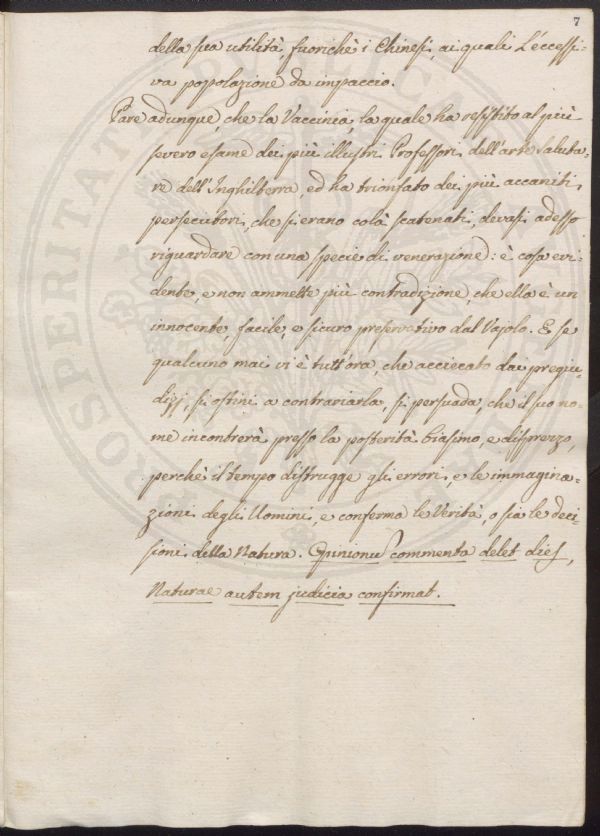 7
della sua utilità, fuorichè i Chinesi, ai quali L'eccessi-
va popolazione da impaccio.
Pare adunque, che la Vaccinia, la quale ha resistito al più
severo esame dei più illustri Professori dell'arte saluta-
re dell'Inghilterra, ed ha trionfato dei più accaniti
persecutori, che si erano colà scatenati, devasi adesso
riguardare con una specie di venerazione: è cosa evi-
dente, e non ammette più contradizione, che ella è un
innocente, facile, e sicuro preservativo dal Vajolo. E se
qualcuno mai vi è tutt'ora, che acciecato dai pregiu-
dizj, si ostini a contrariarla, si persuada, che il suo no-
me incontrerà presso la posterità biasimo, e disprezzo,
perchè il tempo distrugge gli errori, e le immagina-
zioni degli Uomini, e conferma le Verità, o sia le deci-
sioni della Natura. Opinionū commenta delet dies,
Naturae autem judicia confirmat.
PROSPERITATI PUBLICAE